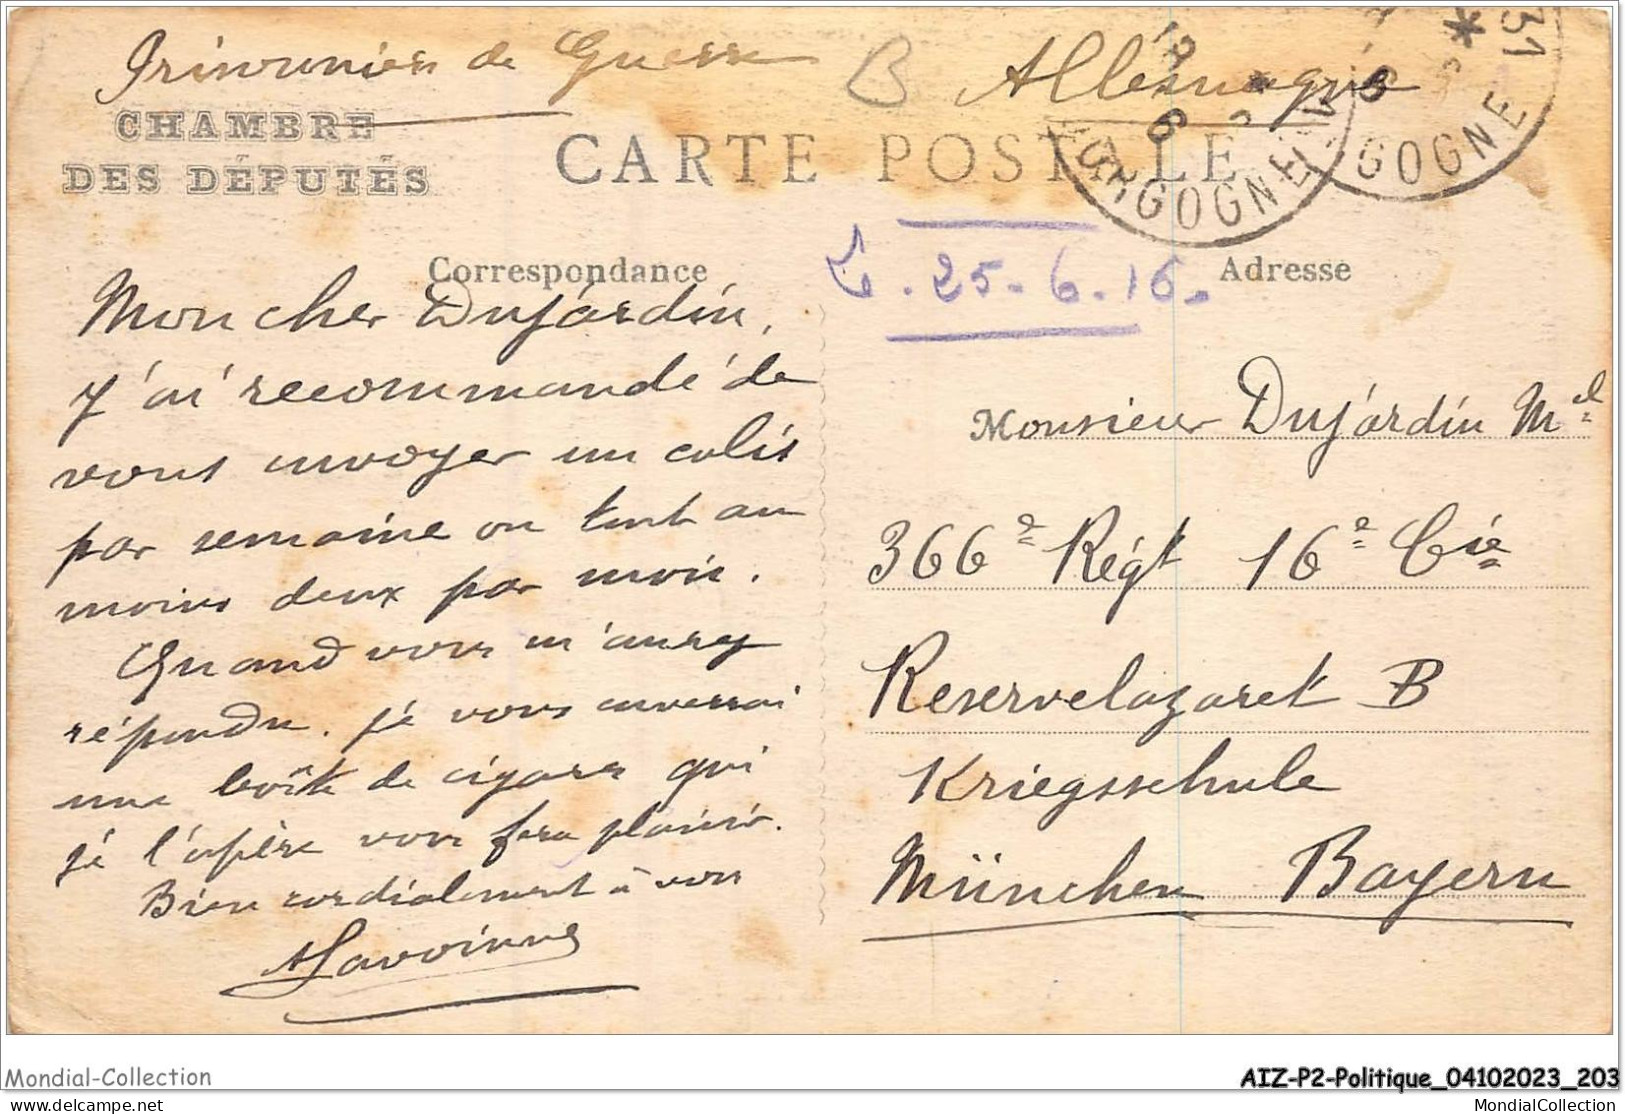 Prisonnier de Guerre B Allemagne
CHAMBRE
DES DÉPUTÉS
CARTE POSTALE
31
GOGNE
GOGNE
Correspondance
25-6-16.
Adresse
Mon cher Dujardin,
J'ai recommandé de
vous envoyer un colis
par semaine ou tout au
moins deux par mois.
Quand vous m'aurez
répondu, je vous enverrai
une boîte de cigares qui
je l'espère vous fera plaisir.
Bien cordialement à vous
Monsieur Dujardin Mel
366e Régt 16e Cie
Reservelazaret B
Kriegsschule
München Bayern
Mondial-Collection
AIZ-P2-Politique_04102023_203
delcampe.net
MondialCollection